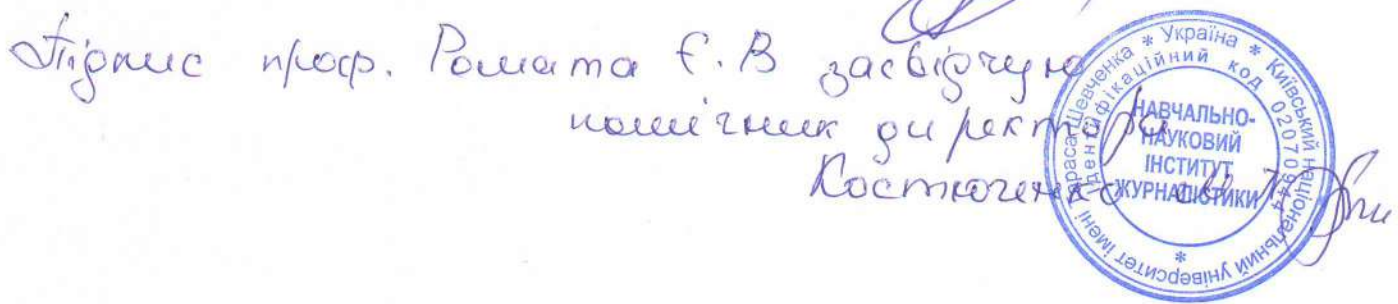 Підпис проф. Ромата Є.В засвідчую
помічник директора
Костюченко
* Україна * Київський національний університет імені Тараса Шевченка *
ідентифікаційний код 02070944
НАВЧАЛЬНО-
НАУКОВИЙ
ІНСТИТУТ
ЖУРНАЛІСТИКИ